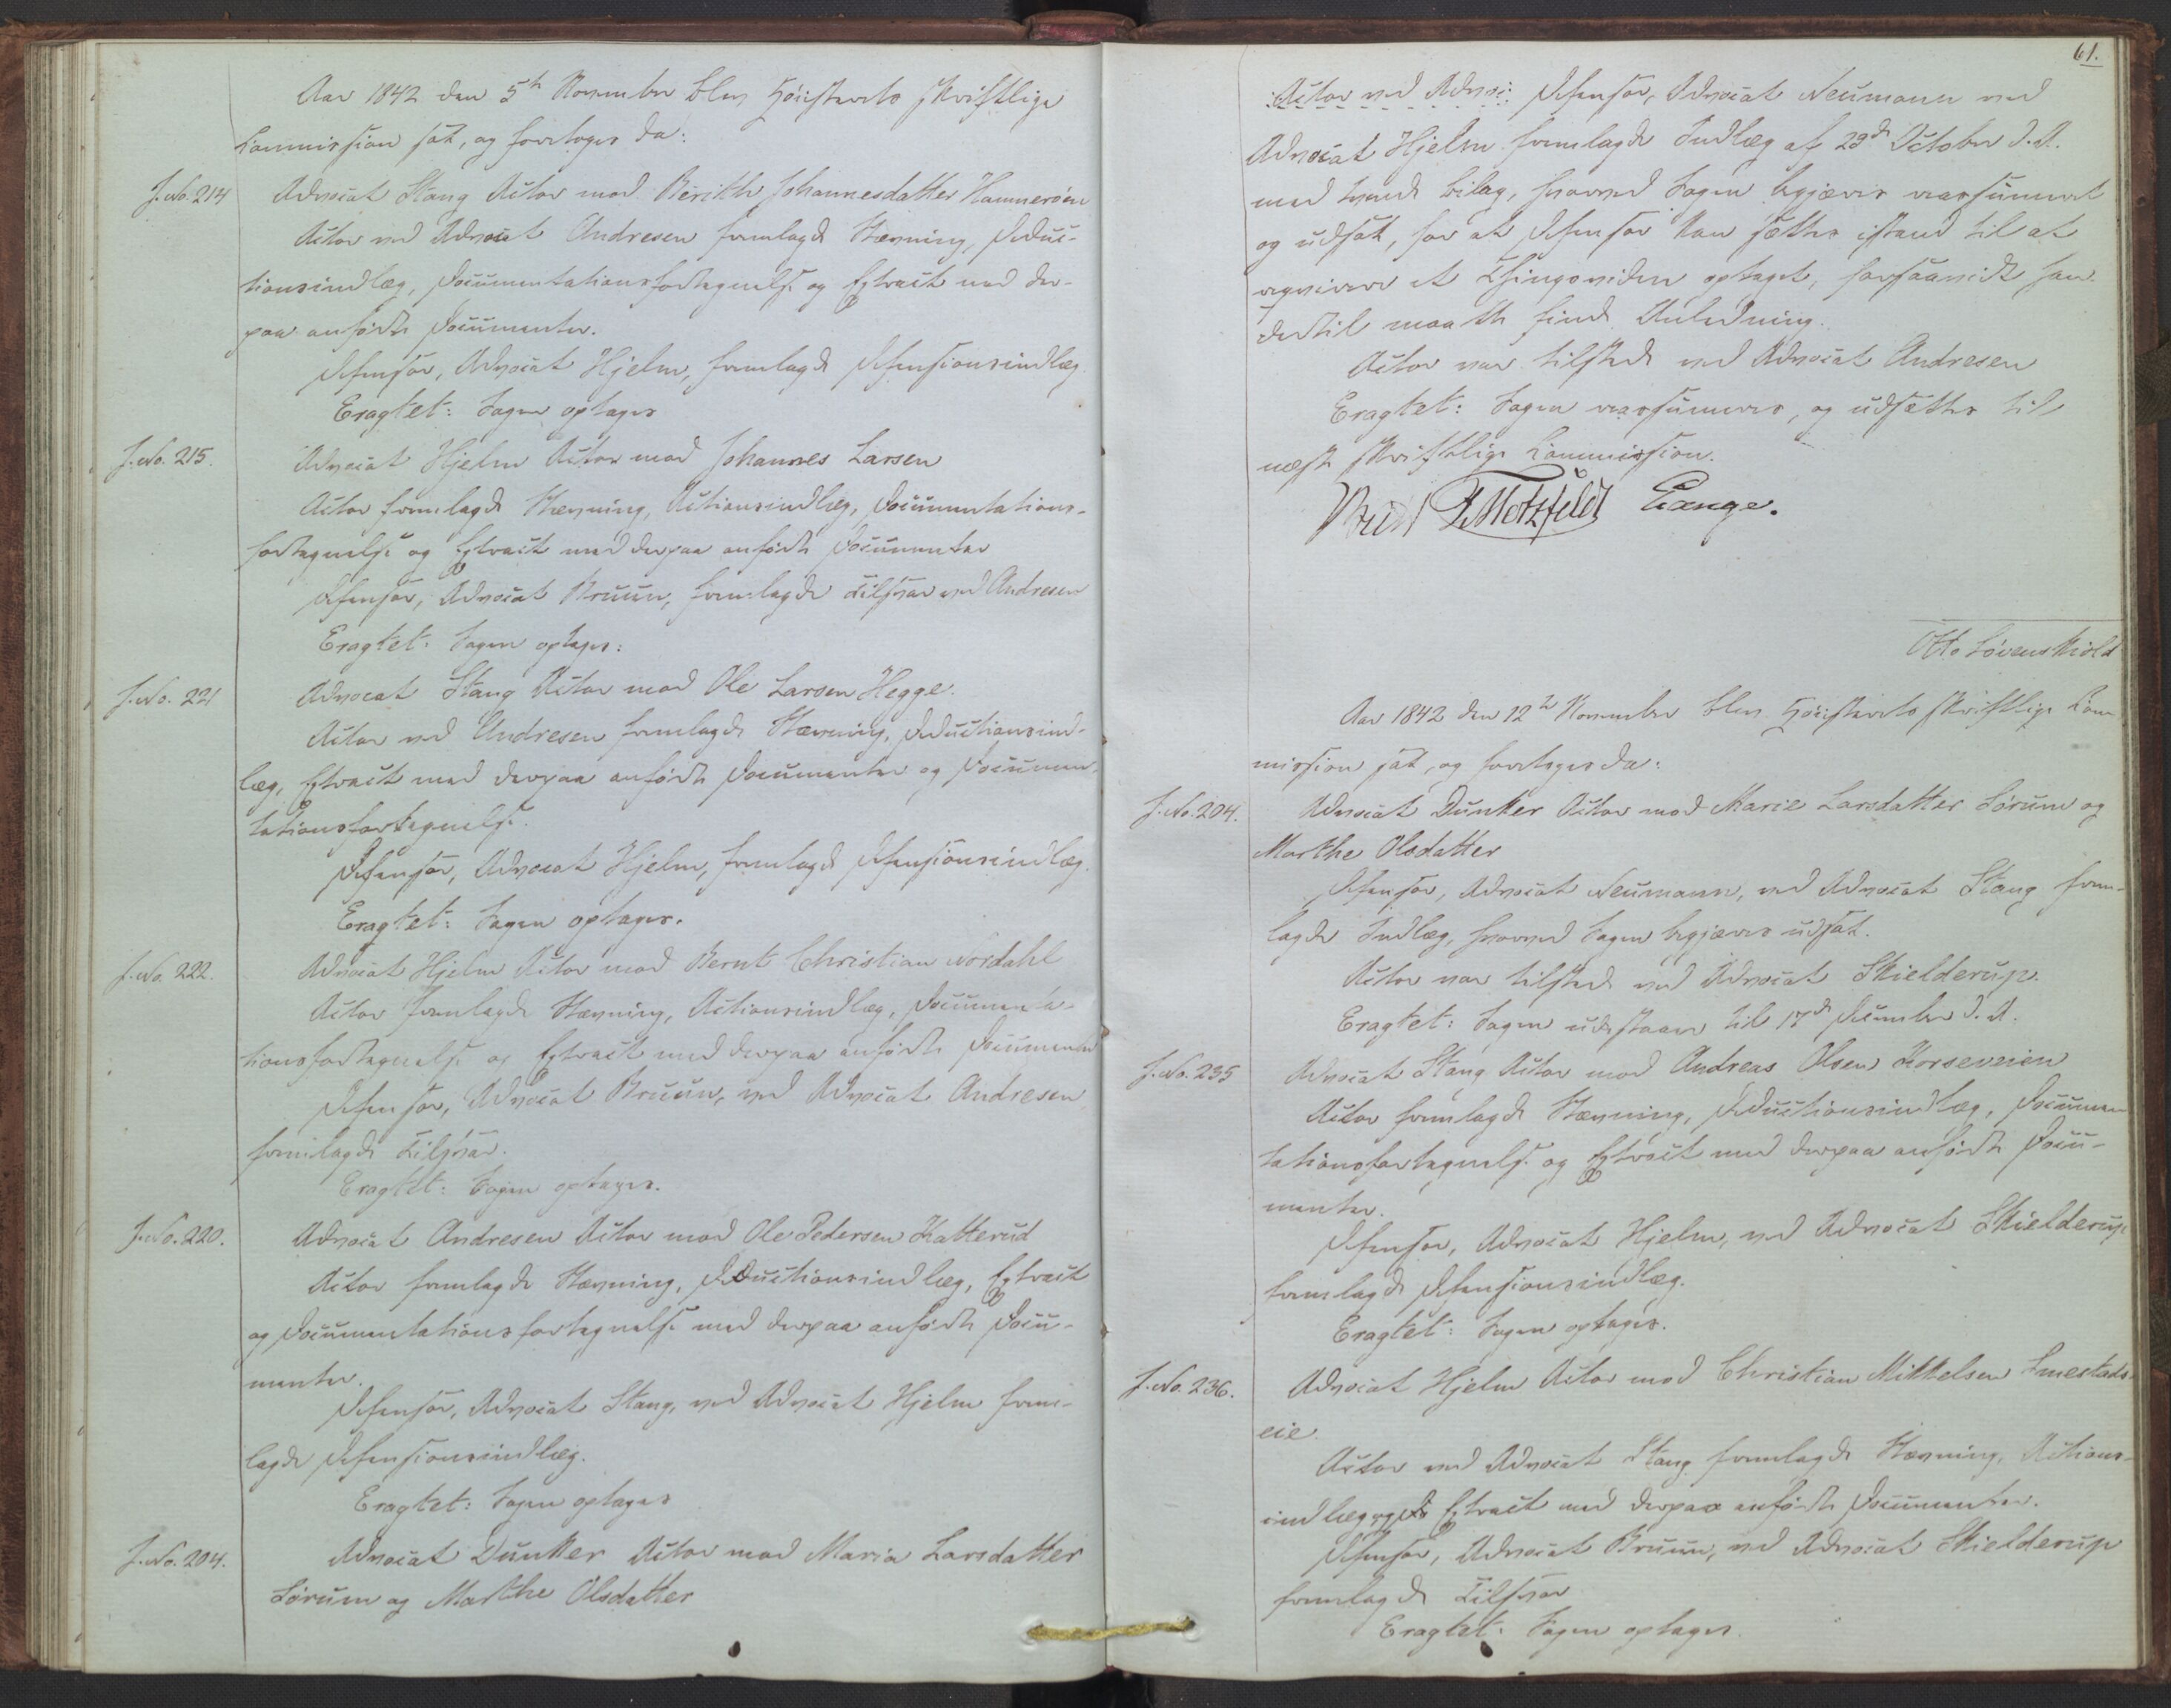 Aar 1842 den 5te November blev Høiesterets skriftlige
Commission sat, og foretoges da:
J. No. 214 Advocat Stang Actor mod Berithe Johannesdatter Hammerøen
Actor ved Advocat Andresen fremlagde Stævning, Deduc-
tionsindlæg, Documentationsfortegnelse og Extract med der-
paa anførte Documenter.
Defensor, Advocat Hjelm, fremlagde Defensionsindlæg.
Eragtet: Sagen optages
J. No. 215. Advocat Hjelm Actor mod Johannes Larsen
Actor fremlagde Stævning, Actionsindlæg, Documentations-
fortegnelse og Extract med derpaa anførte Documenter
Defensor, Advocat Bruun, fremlagde Tilsvar ved Andresen
Eragtet: Sagen optages:
J. No. 221 Advocat Stang Actor mod Ole Larsen Hegge.
Actor ved Andresen fremlagde Stævning, Deductionsind-
læg, Extract med derpaa anførte Documenter og Documen-
tationsfortegnelse.
Defensor, Advocat Hjelm, fremlagde Defensionsindlæg.
Eragtet: Sagen optages.
J. No. 222. Advocat Hjelm Actor mod Bernt Christian Nordahl
Actor fremlagde Stævning, Actionsindlæg, Documenta-
tionsfortegnelse og Extract med derpaa anførte Documenter
Defensor, Advocat Bruun, ved Advocat Andresen
fremlagde Tilsvar.
Eragtet: Sagen optages.
J. No. 220. Advocat Andresen Actor mod Ole Pedersen Katterud
Actor fremlagde Stævning, Deductionsindlæg, Extract
og Documentationsfortegnelse med derpaa anførte Docu-
menter.
Defensor, Advocat Stang, ved Advocat Hjelm frem-
lagde Defensionsindlæg.
Eragtet: Sagen optages
J. No. 204. Advocat Dunker Actor mod Maria Larsdatter
Sørum og Marthe Olsdatter
61.
Actor ved Advoc: Defensor, Advocat Neumann ved
Advocat Hjelm fremlagde Indlæg af 29de October d. A.
med tvende Bilag, hvorved Sagen begjæres reassumeret
og udsat, for at Defensor kan sættes istand til at
reqvirere et Thingsvidne optaget, forsaavidt han
dertil maatte finde Anledning.
Actor var tilstede ved Advocat Andresen
Eragtet: Sagen reassumeres, og udsættes til
næste skriftlige Commission.
P. Motzfeldt Lange.
Otto Løvenskiold
Aar 1842 den 12te November blev Høiesterets skriftlige Com-
mission sat, og foretoges da:
J. No. 204. Advocat Dunker Actor mod Marie Larsdatter Sørum og
Marthe Olsdatter
Defensor, Advocat Neumann, ved Advocat Stang frem-
lagde Indlæg, hvorved Sagen begjæres udsat.
Actor var tilstede ved Advocat Skielderup.
Eragtet: Sagen udestaaer til 17de December d. A.
J. No. 235 Advocat Stang Actor mod Andreas Olsen Korseveien
Actor fremlagde Stævning, Deductionsindlæg, Documen
tationsfortegnelse og Extract med derpaa anførte Docu-
menter.
Defensor, Advocat Hjelm, ved Advocat Skielderup
fremlagde Defensionsindlæg.
Eragtet: Sagen optages.
J. No. 236. Advocat Hjelm Actor mod Christian Mikkelsen Smestads-
eie.
Actor ved Advocat Stang fremlagde Stævning, Actions-
indlæg og Extract med derpaa anførte Documenter.
Defensor, Advocat Bruun, ved Advocat Skielderup
fremlagde Tilsvar
Eragtet: Sagen optages.